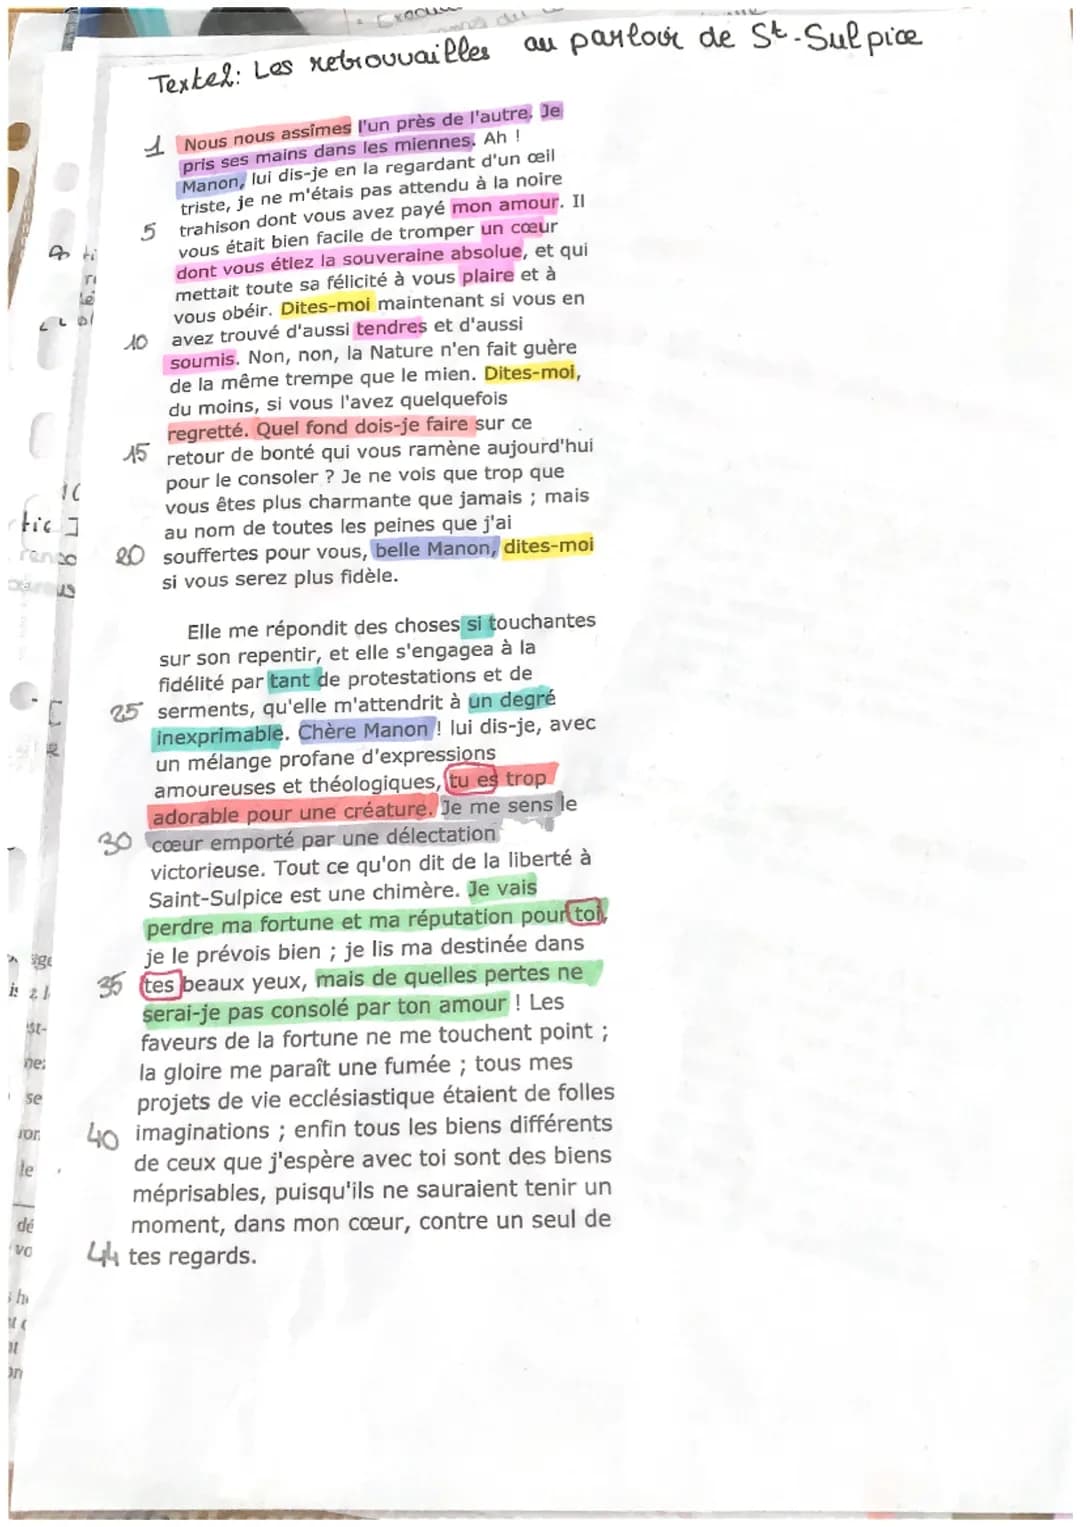 Texte2: Les retrouvailles au parloir de St-Sulpice
1 Nous nous assîmes l'un près de l'autre. Je
pris ses mains dans les miennes. Ah !
Manon, lui dis-je en la regardant d'un œil
triste, je ne m'étais pas attendu à la noire
5 trahison dont vous avez payé mon amour. Il
vous était bien facile de tromper un cœur
dont vous étiez la souveraine absolue, et qui
mettait toute sa félicité à vous plaire et à
vous obéir. Dites-moi maintenant si vous en
10 avez trouvé d'aussi tendres et d'aussi
soumis. Non, non, la Nature n'en fait guère
de la même trempe que le mien. Dites-moi,
du moins, si vous l'avez quelquefois
regretté. Quel fond dois-je faire sur ce
15 retour de bonté qui vous ramène aujourd'hui
pour le consoler ? Je ne vois que trop que
vous êtes plus charmante que jamais ; mais
au nom de toutes les peines que j'ai
20 souffertes pour vous, belle Manon, dites-moi
si vous serez plus fidèle.
Elle me répondit des choses si touchantes
sur son repentir, et elle s'engagea à la
fidélité par tant de protestations et de
25 serments, qu'elle m'attendrit à un degré
inexprimable. Chère Manon ! lui dis-je, avec
un mélange profane d'expressions
amoureuses et théologiques, tu es trop
adorable pour une créature. Je me sens le
30 cœur emporté par une délectation
victorieuse. Tout ce qu'on dit de la liberté à
Saint-Sulpice est une chimère. Je vais
perdre ma fortune et ma réputation pour toi,
je le prévois bien ; je lis ma destinée dans
35 tes beaux yeux, mais de quelles pertes ne
serai-je pas consolé par ton amour ! Les
faveurs de la fortune ne me touchent point ;
la gloire me paraît une fumée ; tous mes
projets de vie ecclésiastique étaient de folles
40 imaginations ; enfin tous les biens différents
de ceux que j'espère avec toi sont des biens
méprisables, puisqu'ils ne sauraient tenir un
moment, dans mon cœur, contre un seul de
44 tes regards.